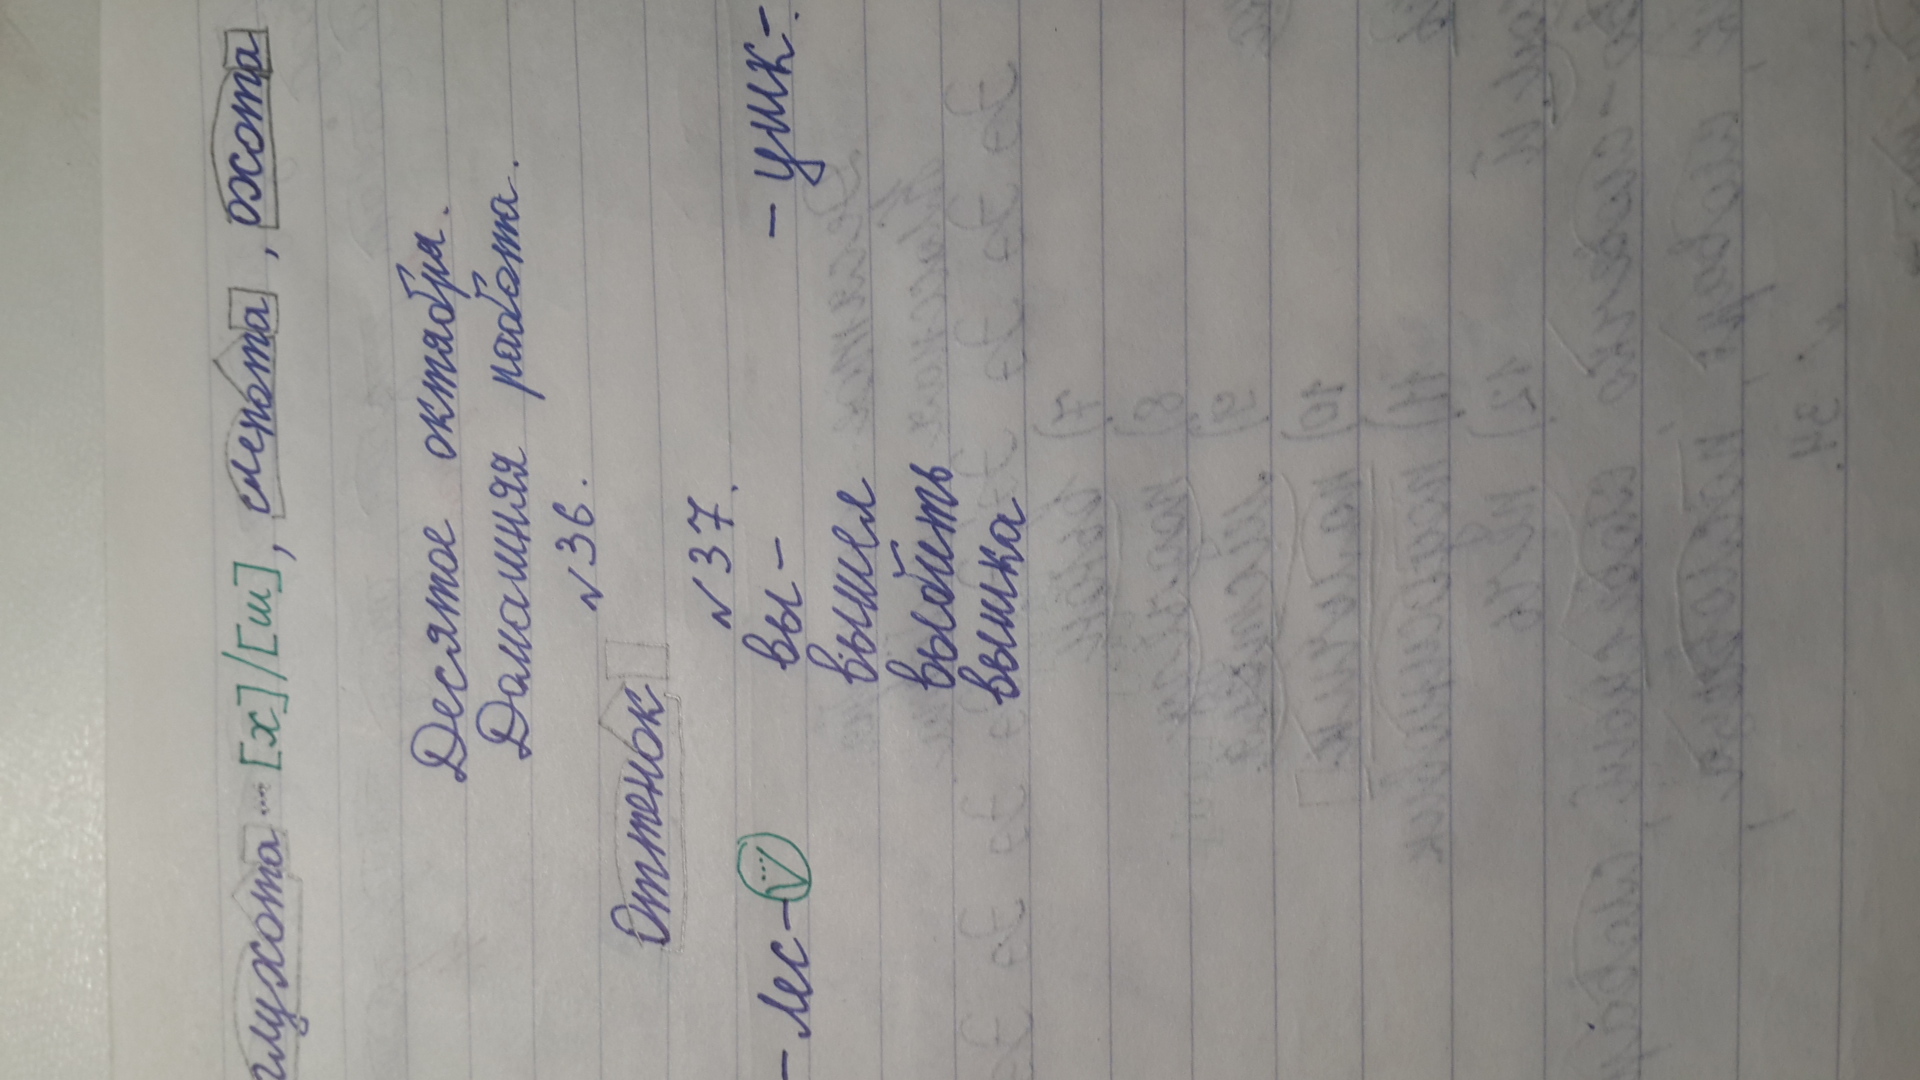 глухота ... [х]/[ш], слепота, охота
Десятое октября.
Домашняя работа.
№36.
Оттенок
№37.
-лес- вы- -ушк-.
вышел
выбить
вышка